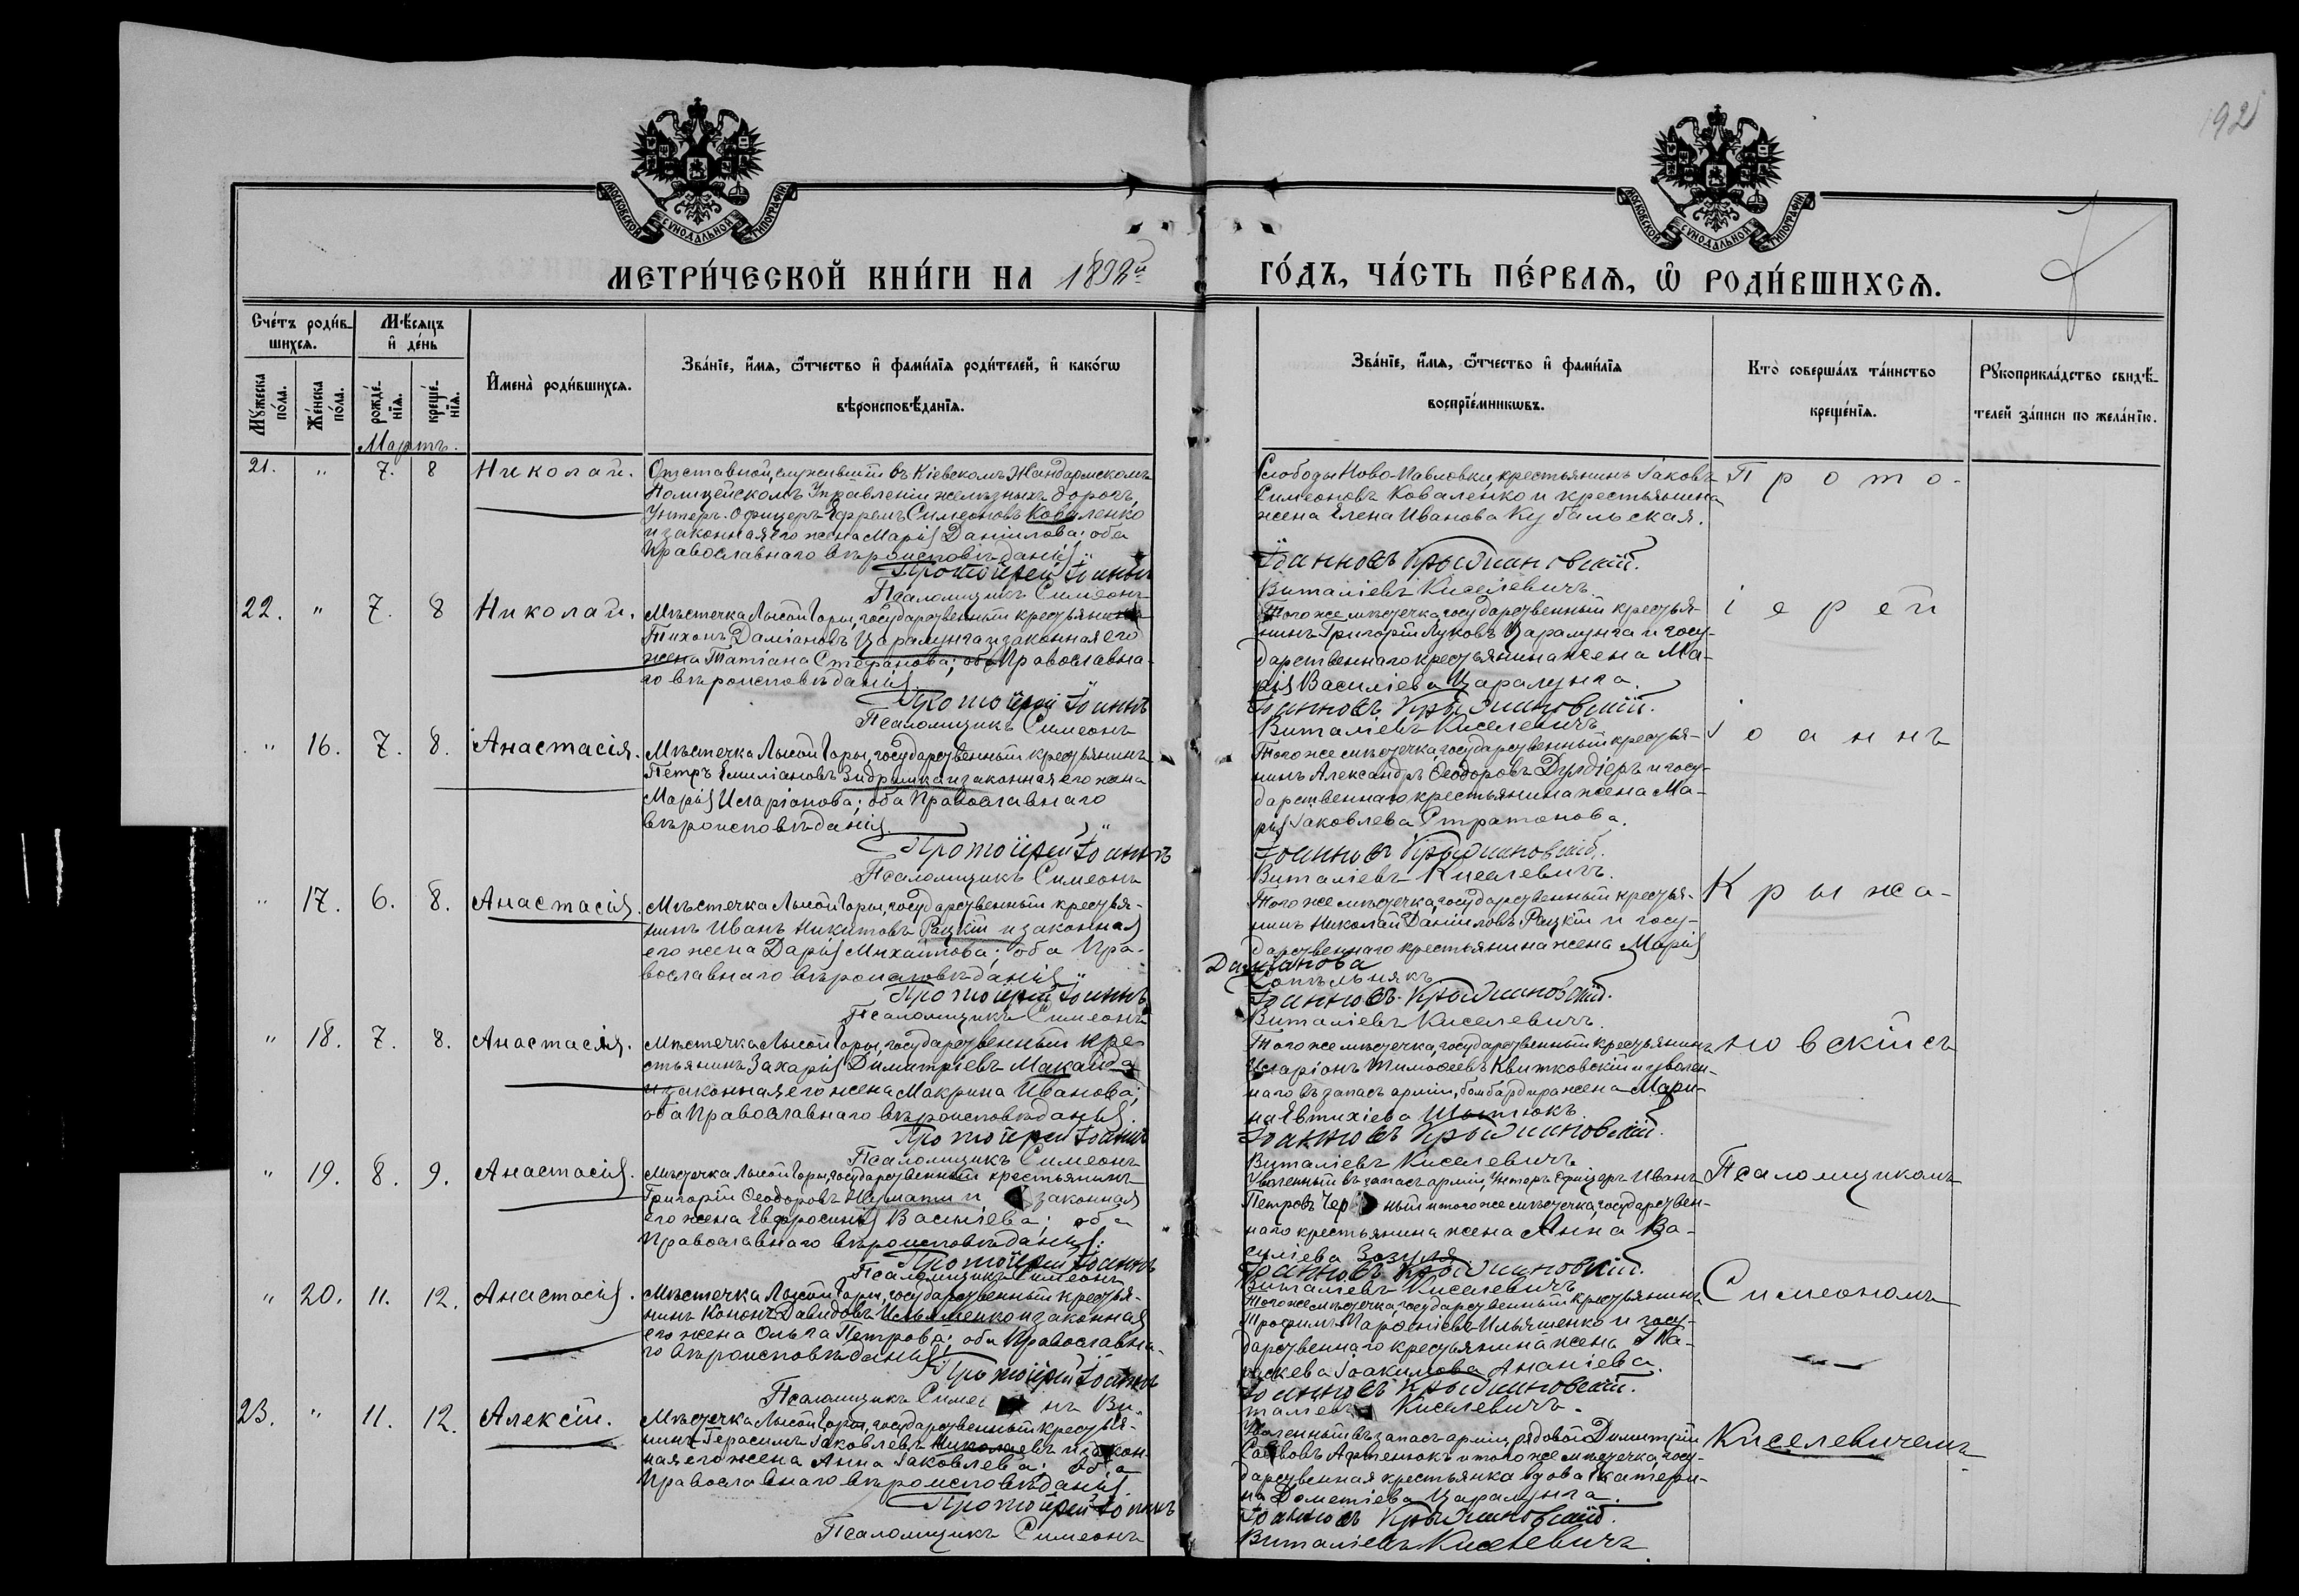 192
МОСКОВСКОЙ СУНОДАЛЬНОЙ ТИПОГРАФІИ
МОСКОВСКОЙ СУНОДАЛЬНОЙ ТИПОГРАФІИ
МЕТРИ́ЧЕСКОЙ КНИ́ГИ НА 1892й ГО́ДЪ, ЧА́СТЬ ПЕ́РВАѦ, Ѡ РОДИ́ВШИХСѦ.
Сче́тъ роди́в-
шихсѧ.
Мѣ́сѧцъ
и҆ де́нь
Мꙋ́жеска по́ла.
Же́нска по́ла.
рожде́нїѧ.
креще́нїѧ.
И҆мена̀ роди́вшихсѧ.
Зва́нїе, и҆́мѧ, ѻ҆́тчество и҆ фами́лїѧ роди́телей, и҆ како́гѡ
вѣроисповѣ́данїѧ.
Зва́нїе, и҆́мѧ, ѻ҆́тчество и҆ фами́лїѧ
воспрїе́мникѡвъ.
Кто̀ соверша́лъ та́инство
креще́нїѧ.
Рꙋкоприкла́дство свидѣ́-
телей за́писи по жела́нїю.
Мартъ.
21. " 7. 8 Николай.
Отставной, служившій въ Кіевскомъ Жандармскомъ
Полицейскомъ Управленіи желѣзныхъ дорогъ,
Унтеръ-Офицеръ Ефремъ Симеоновъ Коваленко
и законная его жена Марія Даніилова; оба
Православнаго вѣроисповѣданія.
Протоіерей Іоаннъ
Псаломщикъ Симеонъ
Слободы Ново-Павловки, крестьянинъ Іаковъ
Симеоновъ Коваленко и крестьянина
жена Елена Иванова Кубальская.
Іоанновъ Крыжановскій.
Виталіевъ Киселевичъ.
Прото-
22. " 7. 8 Николай.
Мѣстечка Лысой Горы, государственный крестьянинъ
Тихонъ Даміановъ Царалунга и законная его
жена Татіана Стефанова; оба Православна-
го вѣроисповѣданія.
Протоіерей Іоаннъ
Псаломщикъ Симеонъ
Того же мѣстечка, государственный крестья-
нинъ Григорій Луковъ Царалунга и госу-
дарственнаго крестьянина жена Ма-
рія Василіева Царалунга.
Іоанновъ Крыжановскій.
Виталіевъ Киселевичъ
іерей
" 16. 7. 8. Анастасія.
Мѣстечка Лысой Горы, государственный крестьянинъ
Петръ Емиліановъ и законная его жена
Марія Иларіонова; оба Православнаго
вѣроисповѣданія.
Протоіерей Іоаннъ
Псаломщикъ Симеонъ
Того же мѣстечка, государственный крестья-
нинъ Александръ Ѳеодоровъ и госу-
дарственнаго крестьянина жена Ма-
рія Іаковлева Стратонова.
Іоанновъ Крыжановскій.
Виталіевъ Киселевичъ.
Іоаннъ
" 17. 6. 8. Анастасія.
Мѣстечка Лысой Горы, государственный крестья-
нинъ Иванъ Никитовъ Рацкій и законная
его жена Дарія Михайлова; оба Пра-
вославнаго вѣроисповѣданія.
Протоіерей Іоаннъ
Псаломщикъ Симеонъ
Того же мѣстечка, государственный крестья-
нинъ Николай Даніиловъ Рацкій и госу-
дарственнаго крестьянина жена Марія
Даміанова
Іоанновъ Крыжановскій.
Виталіевъ Киселевичъ.
Крыжа-
" 18. 7. 8. Анастасія.
Мѣстечка Лысой Горы, государственный кре-
стьянинъ Захарія Димитріевъ Макайда
и законная его жена Макрина Иванова;
оба Православнаго вѣроисповѣданія.
Протоіерей Іоаннъ
Псаломщикъ Симеонъ
Того же мѣстечка, государственный крестьянинъ
Иларіонъ Тимоѳеевъ Квитковскій и уволен-
наго въ запасъ арміи, бомбардира жена Мари-
на Евтихіева
Іоанновъ Крыжановскій.
Виталіевъ Киселевичъ
новскій съ
" 19. 8. 9. Анастасія.
Мѣстечка Лысой Горы, государственный крестьянинъ
Григорій Ѳеодоровъ и законная
его жена Евфросинія Василіева; оба
Православнаго вѣроисповѣданія.
Протоіерей Іоаннъ
Псаломщикъ Симеонъ
Уволенный въ запасъ арміи, Унтеръ Офицеръ Иванъ
Петровъ Черный и того же мѣстечка, государствен-
наго крестьянина жена Анна Ва-
силіева Зозуля
Іоанновъ Крыжановскій.
Виталіевъ Киселевичъ
Псаломщикомъ
" 20. 11. 12. Анастасія.
Мѣстечка Лысой Горы, государственный крестья-
нинъ Кононъ Давидовъ Ильяшенко и законная
его жена Ольга Петрова; оба Православна-
го вѣроисповѣданія.
Протоіерей Іоаннъ
Псаломщикъ Симеонъ Ви-
Того же мѣстечка, государственный крестьянинъ
Трофимъ Парѳеніевъ Ильяшенко и госу-
дарственнаго крестьянина жена Па-
раскева Іоакимова Ананіева.
Іоанновъ Крыжановскій.
таліевъ Киселевичъ.
Симеономъ
23. " 11. 12. Алексій.
Мѣстечка Лысой Горы, государственный крестья-
нинъ Герасимъ Іаковлевъ Николаевъ и закон-
ная его жена Анна Іаковлева; оба
Православнаго вѣроисповѣданія.
Протоіерей Іоаннъ
Псаломщикъ Симеонъ
Уволенный въ запасъ арміи, рядовой Димитрій
Саввовъ Артенюкъ и того же мѣстечка, госу-
дарственная крестьянка вдова Екатери-
на Дометіева Царалунга.
Іоанновъ Крыжановскій.
Виталіевъ Киселевичъ
Киселевичемъ